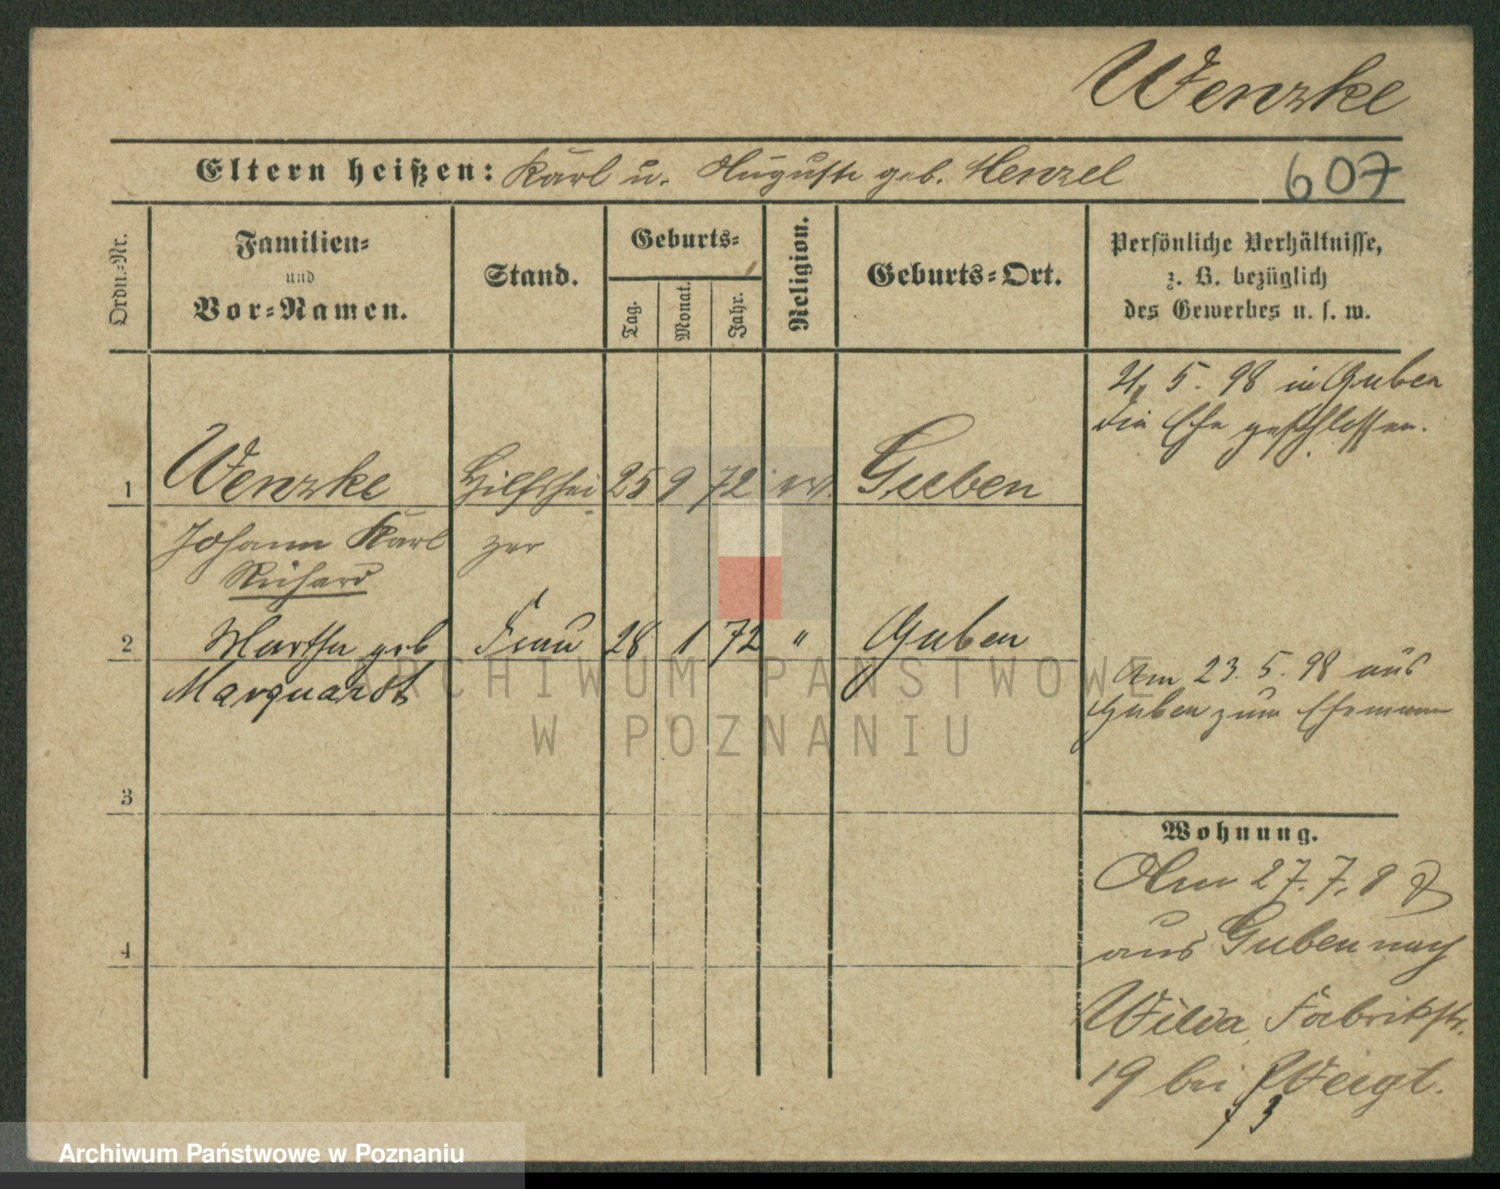 Wenzke
Eltern heißen: Karl u. Auguste geb. Henzel
607
Ordn.-Nr.
Familien-
und
Vor-Namen.
Stand.
Geburts-
Tag.
Monat.
Jahr.
Religion.
Geburts-Ort.
Persönliche Verhältnisse,
z. B. bezüglich
des Gewerbes u. s. w.
5. 98 in Guben
die Ehe geschlossen.
1 Wenzke Hilfshei 25 9 72 ev. Guben
Johann Karl zer
Richard
2 Martha geb Frau 28 1 72 " Guben
Marquardt
Am 23. 5. 98 aus
Guben zum Ehemann
3
Wohnung.
27. 7. 9
aus Guben nach
4
Wilda, Fabrikstr.
19 bei Weigt.
ARCHIWUM PAŃSTWOWE
W POZNANIU
Archiwum Państwowe w Poznaniu